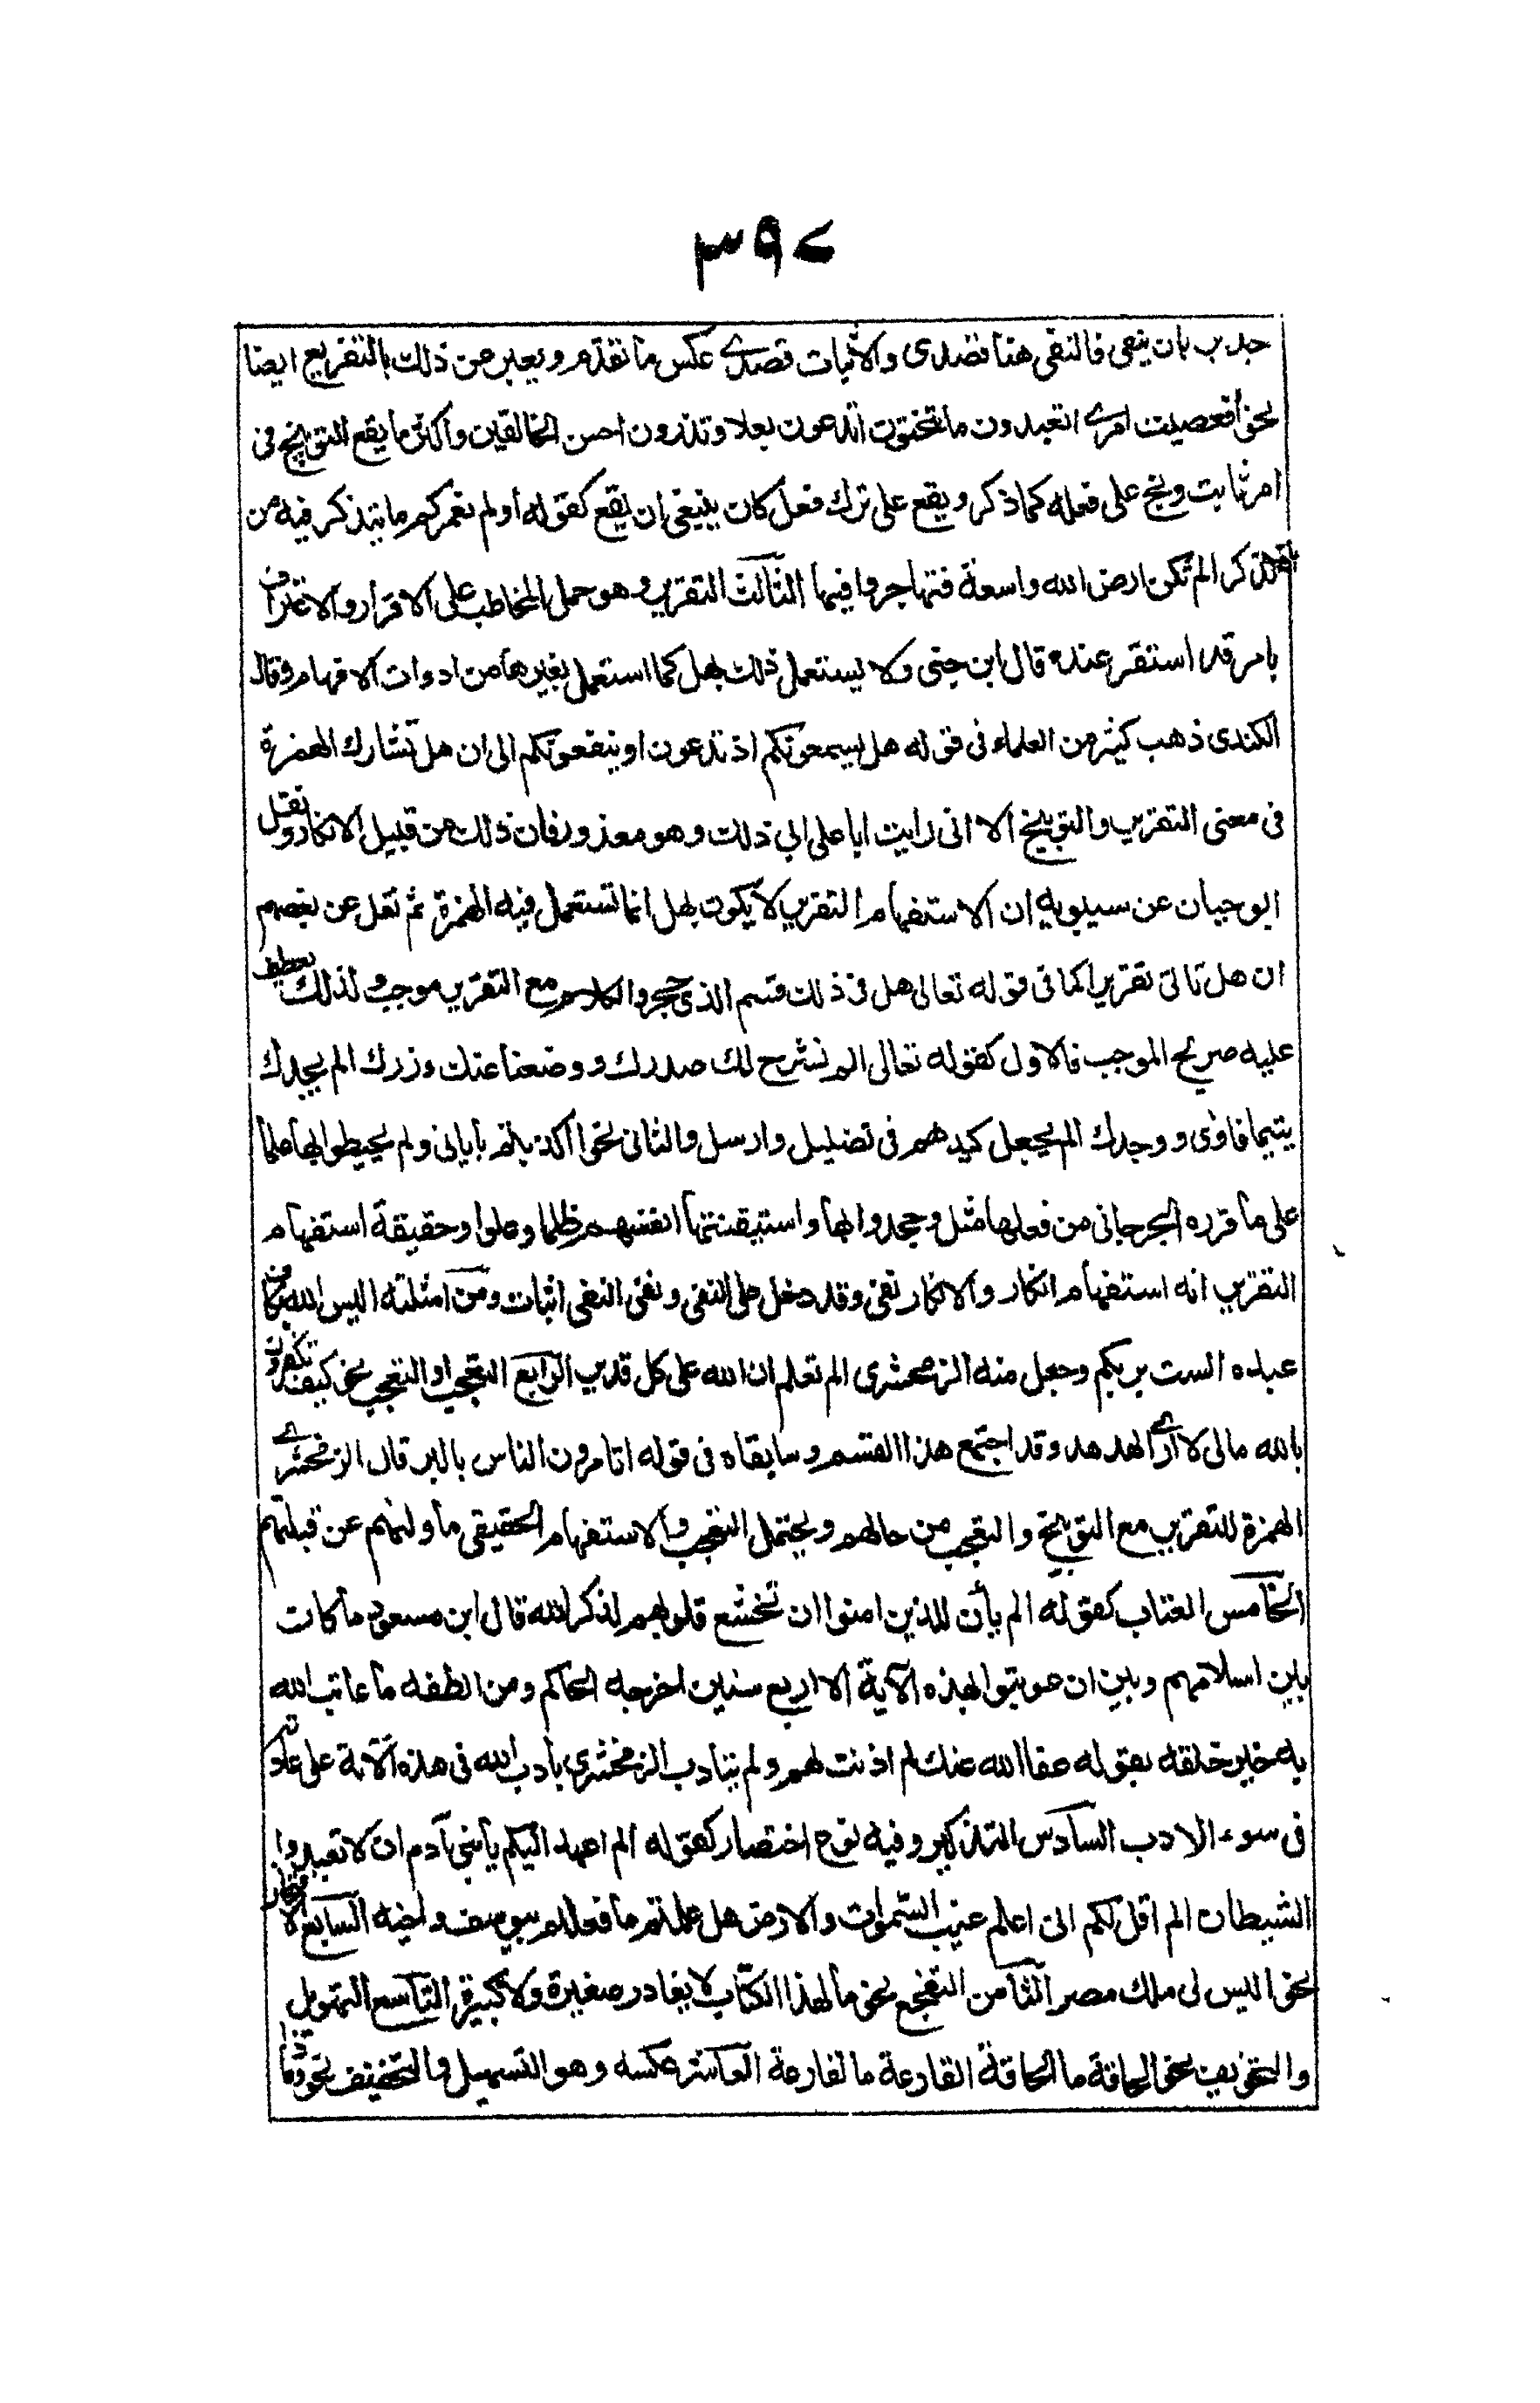 ٣٩٧
جدير بان ينفى فالنفى هنا قصدى والاثبات قصدى عكس ما تقدم ويعبر عن ذلك بالتقريع ايضا
نحو أفعصيت امرى اتعبدون ما تنحتون اتدعون بعلا وتذرون احسن الخالقين واكثر ما يقع التوبيخ فى
امر ثابت وبخ على فعله كما ذكر ويقع على ترك فعل كان ينبغى ان يقع كقوله أولم نعمركم ما يتذكر فيه من
تذكر الم تكن ارض الله واسعة فتهاجروا فيها الثالث التقرير وهو حمل المخاطب على الاقرار والاعتراف
بامر قد استقر عنده قال ابن جنى ولا يستعمل ذلك بهل كما استعمل بغيرها من ادوات الافهام وقال
الكندى ذهب كثير من العلماء فى قوله هل يسمعونكم اذ تدعون او ينفعونكم الى ان هل تشارك الهمزة
فى معنى التقرير والتوبيخ الا انى رايت ابا على ابى ذلك وهو معذور فان ذلك من قبيل الانكار ونقل
ابو حيان عن سيبويه ان الاستفهام التقرير لا يكون بهل انما تستعمل فيه الهمزة ثم نقل عن بعضهم
ان هل تاتى تقريرا كما فى قوله تعالى هل فى ذلك قسم الذى حجر والكلام مع التقرير موجب ولذلك يعطف
عليه صريح الموجب فالاول كقوله تعالى الم نشرح لك صدرك ووضعنا عنك وزرك الم يجدك
يتيما فاوى ووجدك الم يجعل كيدهم فى تضليل وارسل والثانى نحو اكذبتم بأياتى ولم يحيطوا بها علما
على ما قرره الجرجانى من فعلها مثل وجحدوا بها واستيقنتها انفسهم ظلما وعلوا وحقيقة استفهام
التقرير انه استفهام انكار والانكار نفى وقد دخل على النفى ونفى النفى اثبات ومن امثلته اليس الله بكاف
عبده الست بربكم وجعل منه الزمحشرى الم تعلم ان الله على كل قدير الرابع التعجب او التعجيب نحو كيف تكفرون
بالله مالى لا ارى الهدهد وقد اجتمع هذا القسم وسابقاه فى قوله اتامرون الناس بالبر قال الزمخشرى
الهمزة للتقرير مع التوبيخ والتعجب من حالهم ويحتمل التعجب والاستفهام الحقيقى ما ولهم عن قبلتهم
الخامس العتاب كقوله الم يأن للذين امنوا ان تخشع قلوبهم لذكر الله قال ابن مسعود ما كان
بين اسلامهم وبين ان عوتبوا بهذه الآية الا اربع سنين اخرجه الحاكم ومن الطفه ما عاتب الله
به خير خلقه بقوله عفا الله عنك لم اذنت لهم ولم يتادب الزمخشرى بأدب الله فى هذه الآية على عادته
فى سوء الادب السادس التذكير وفيه نوع اختصار كقوله الم اعهد اليكم يأبنى آدم ان لا تعبدوا
الشيطان الم اقل لكم انى اعلم غيب السموات والارض هل علمتم ما فعلتم بيوسف واخيه السابع الافتخار
نحو اليس لى ملك مصر الثامن التفجع نحو ما لهذا الكتاب لا يغادر صغيرة ولا كبيرة التاسع التهويل
والتخويف نحو الحاقة ما الحاقة القارعة ما لقارعة العاشر عكسه وهو التسهيل والتخفيف نحو وماذا